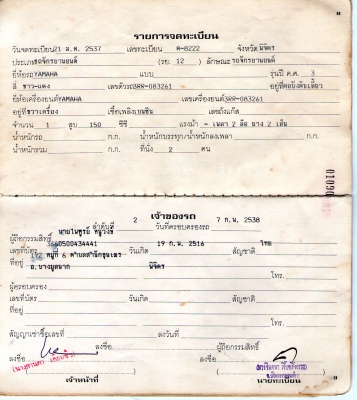 รายการจดทะเบียน
วันจดทะเบียน 21 ธ.ค. 2537 เลขทะเบียน ศ-8222 จังหวัด พิจิตร
ประเภท รถจักรยานยนต์ (รย. 12) ลักษณะ รถจักรยานยนต์
ยี่ห้อรถ YAMAHA แบบ รุ่นปี ค.ศ.
สี ขาว-แดง เลขตัวรถ 3RR-083261 อยู่ที่
ยี่ห้อเครื่องยนต์ YAMAHA เลขเครื่องยนต์ 3RR-083261
อยู่ที่ ขวาเครื่อง เชื้อเพลิง เบนซิน เลขถังแก๊ส
จำนวน 1 สูบ 150 ซีซี แรงม้า - เพลา 2 ล้อ ยาง 2 เส้น
น้ำหนักรถ ก.ก. น้ำหนักบรรทุก/น้ำหนักลงเพลา ก.ก.
น้ำหนักรวม ก.ก. ที่นั่ง 2 คน
เจ้าของรถ
ลำดับที่ 2 วันที่ครอบครองรถ 7 ก.พ. 2538
ผู้ถือกรรมสิทธิ์ นายไพฑูรย์
เลขที่บัตร 3660500434441 วันเกิด 19 ก.พ. 2516 สัญชาติ ไทย
ที่อยู่ 192 หมู่ที่ 6 ตำบลสำนักขุนเณร
อ. บางมูลนาก พิจิตร โทร.
ผู้ครอบครอง
เลขที่บัตร วันเกิด สัญชาติ
ที่อยู่
โทร.
สัญญาเช่าซื้อเลขที่ ลงวันที่
ลงชื่อ ผู้ถือกรรมสิทธิ์
ลงชื่อ ลงชื่อ
เจ้าหน้าที่ นายทะเบียน